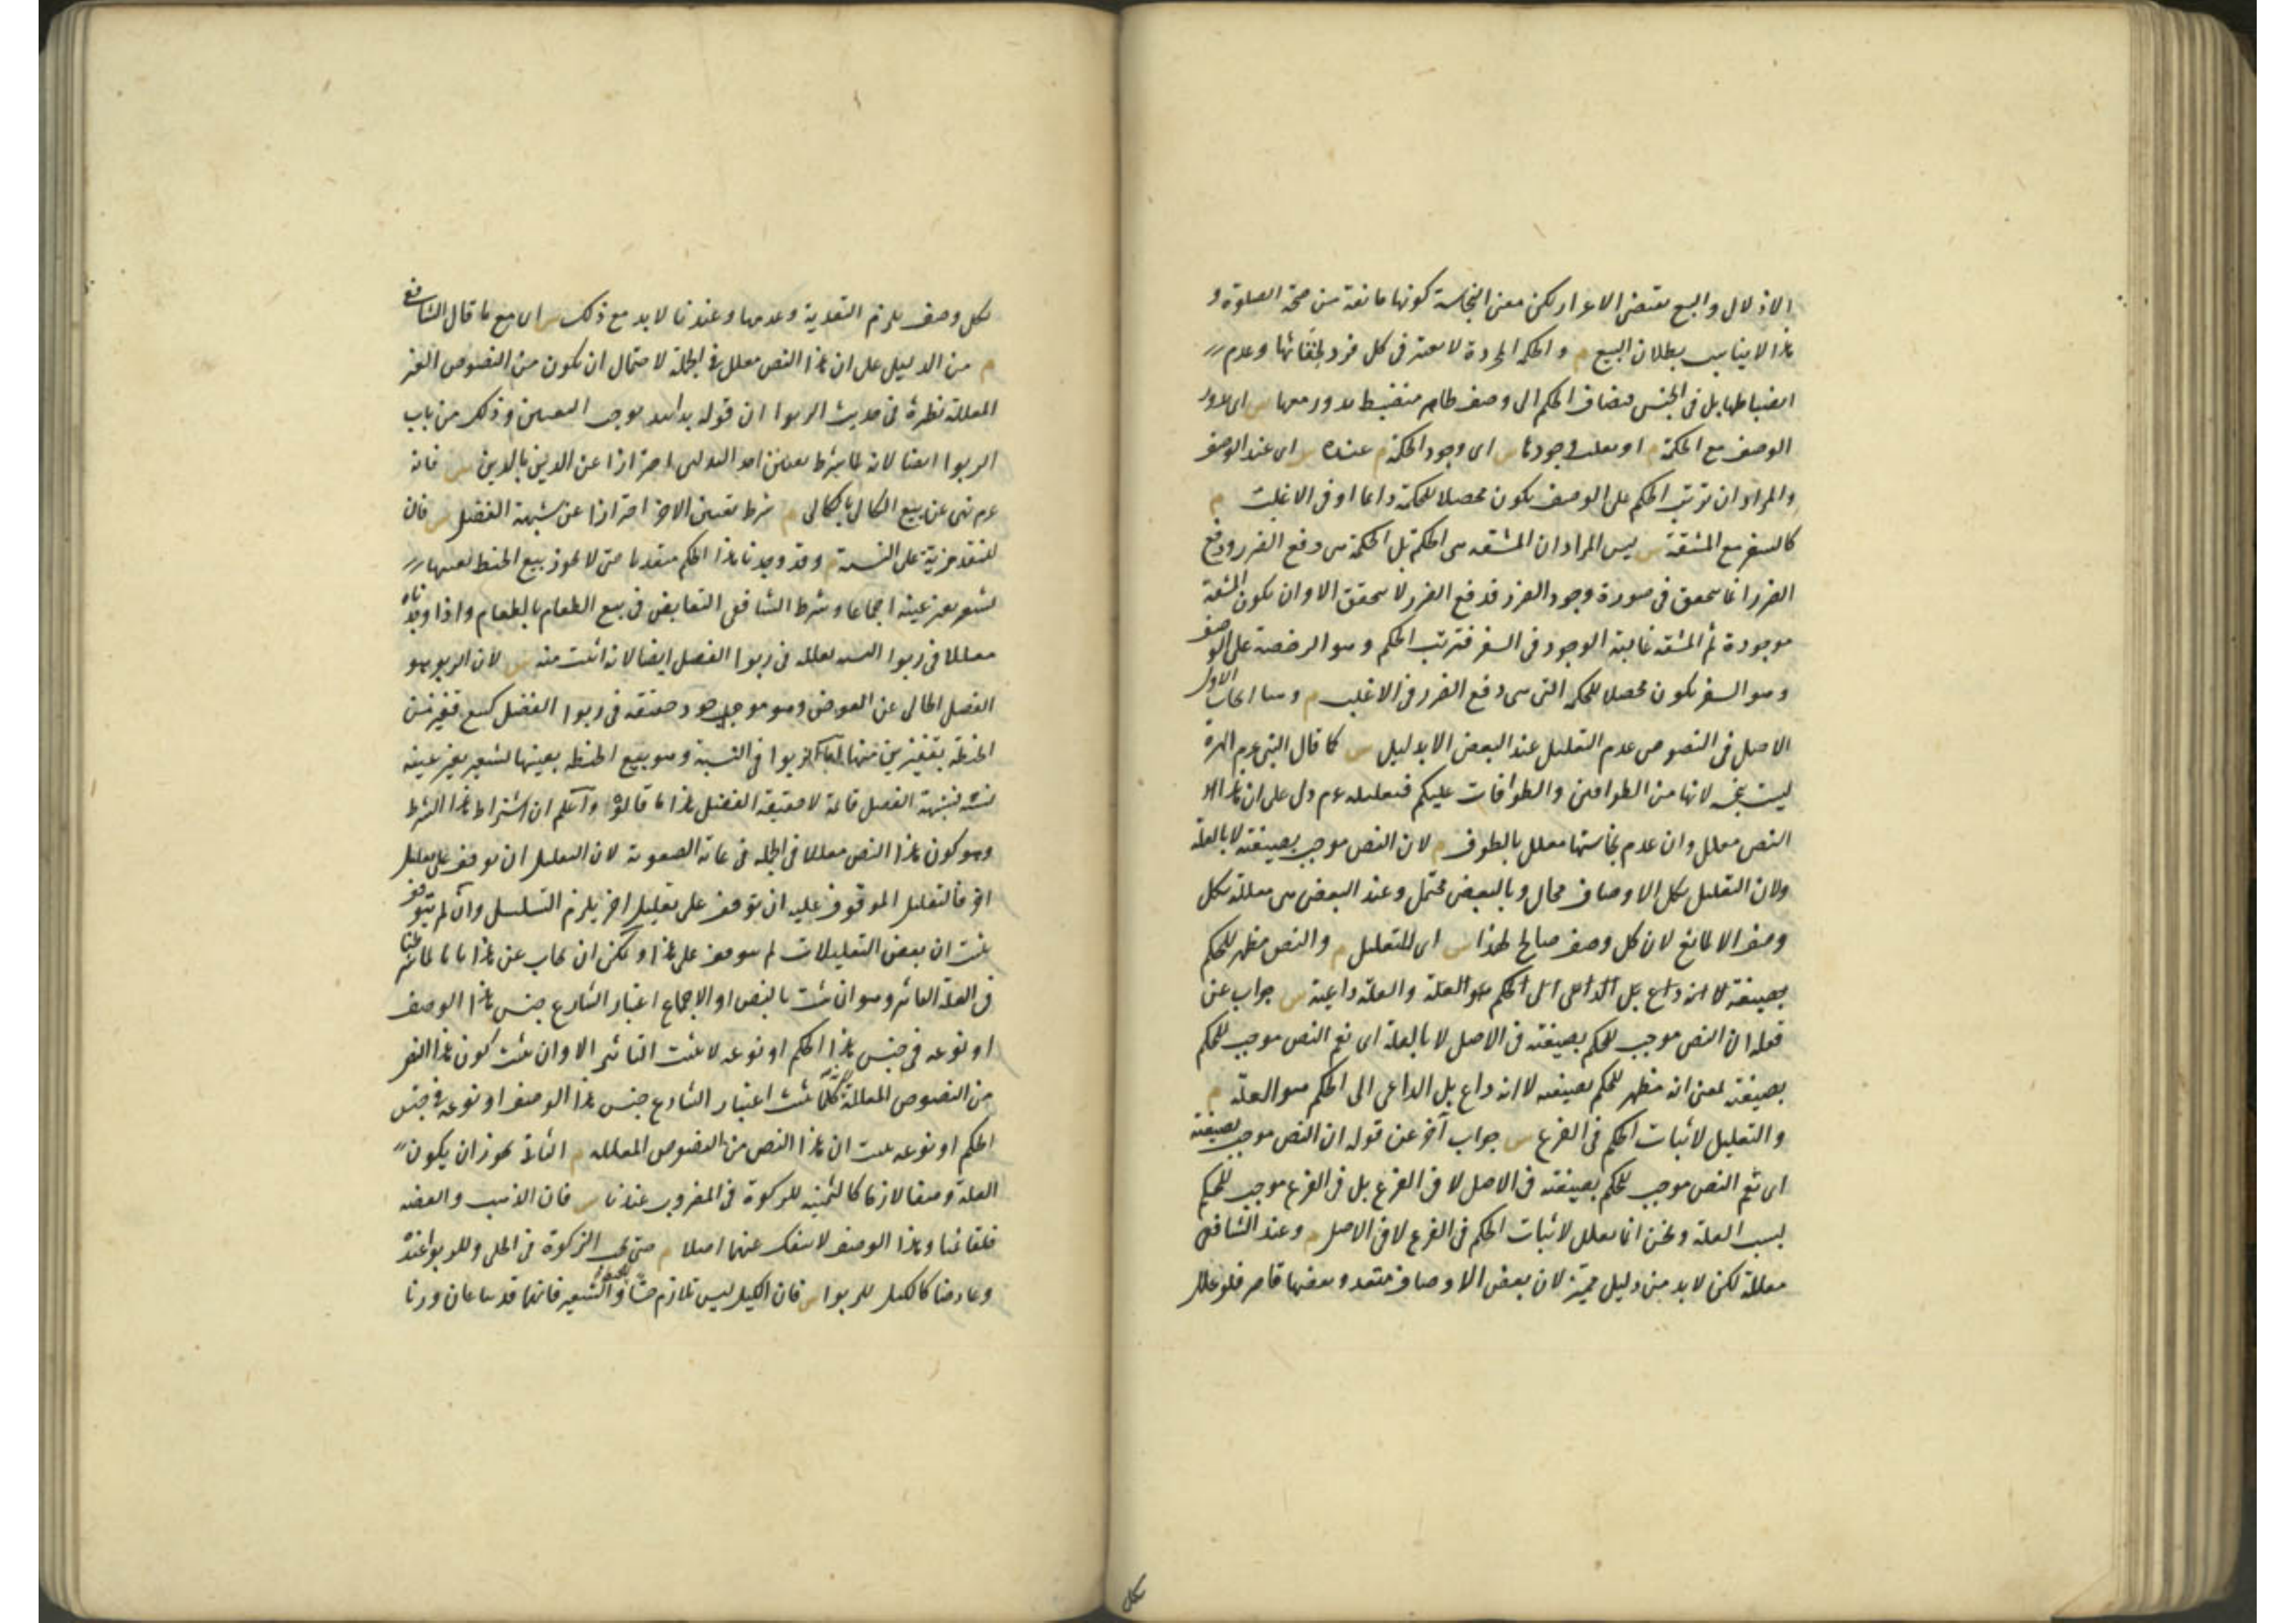 الاذلال والبيع يقتضى الاعزاز لكن معنى النجاسة كونها مانعة من صحة الصلوة و
هذا لا يناسب بطلان البيع م والحكمة المجردة لا تعتبر فى كل فرد لخفائها وعدم
انضباطها بل فى الجنس فيضاف الحكم الى وصف ظاهر منضبط يدور معها س اى يدور
الوصف مع الحكمة م او يغلب وجودها س اى وجود الحكمة م عنده س اى عند الوصف
والمراد ان ترتب الحكم على الوصف يكون محصلا للحكمة دائما او فى الاغلب م
كالسفر مع المشقة س ليس المراد ان المشقة هى الحكمة بل الحكمة هى دفع الضرر ودفع
الضرر انما يتحقق فى صورة وجود الضرر فدفع الضرر لا يتحقق الا وان يكون المشقة
موجودة ثم المشقة غالبة الوجود فى السفر فترتب الحكم وهو الرخصة على الوصف
وهو السفر يكون محصلا للحكمة التى هى دفع الضرر فى الاغلب م وهنا ابحاث الاول
الاصل فى النصوص عدم التعليل عند البعض الا بدليل س كما قال النبى عم الهرة
ليست بنجسة لانها من الطوافين والطوافات عليكم فتعليله عم دل على ان هذا
النص معلل وان عدم نجاستها معلل بالطوف م لان النص موجب بصيغته لا بالعلة
ولان التعليل بكل الاوصاف محال وبالبعض محتمل وعند البعض هى معللة بكل
وصف الا لمانع لان كل وصف صالح لهذا س اى للتعليل م والنص مظهر للحكم
بصيغته لا انه داع بل الداعى الى الحكم هو العلة والعلة داعية س جواب عن
قوله ان النص موجب للحكم بصيغته فى الاصل لا بالعلة اى نعم النص موجب للحكم
بصيغته بمعنى انه مظهر للحكم بصيغته لا انه داع بل الداعى الى الحكم هو العلة م
والتعليل لاثبات الحكم فى الفرع س جواب آخر عن قوله ان النص موجب بصيغته
اى نعم النص موجب للحكم بصيغته فى الاصل لا فى الفرع بل فى الفرع موجب للحكم
بسبب العلة ونحن انما نعلل لاثبات الحكم فى الفرع لا فى الاصل م وعند الشافعى
معللة لكن لا بد من دليل مميز لان بعض الاوصاف متعد وبعضها قاصر فلو علل
بكل
لكل وصف يلزم التعدية وعدمها وعندنا لا بد مع ذلك س اى مع ما قال الشافعى
م من الدليل على ان هذا النص معلل فى الجملة لاحتمال ان يكون من النصوص الغير
المعللة نظيره فى حديث الربوا ان قوله يدا بيد يوجب التعيين وذلك من باب
الربوا ايضا لانه لما شرط تعيين احد البدلين احترازا عن الدين بالدين س فانه
عم نهى عن بيع الكالى بالكالى م شرط تعيين الاخر احترازا عن شبهة الفضل س فان
للنقد مزية على النسية م وقد وجدنا هذا الحكم متعديا حتى لا يجوز بيع الحنطة بعينها
بشعير بغير عينه اجماعا وشرط الشافعى التقابض فى بيع الطعام بالطعام واذا وجدناه
معللا فى ربوا النسية نعلله فى ربوا الفضل ايضا لانه اثبت منه س لان الربوا هو
الفضل الخالى عن العوض وهو موجود حقيقة فى ربوا الفضل كبيع قفيز من
الحنطة بقفيزين منها اما الربوا فى النسية وهو بيع الحنطة بعينها بشعير بغير عينه
نسية فشبهة الفضل قائمة لا حقيقة الفضل هذا ما قالوا واعلم ان اشتراط هذا الشرط
وهو كون هذا النص معللا فى الجملة فى غاية الصعوبة لان التعليل ان توقف على تعليل
اخر فالتعليل الموقوف عليه ان توقف على تعليل اخر يلزم التسلسل وان لم يتوقف
يثبت ان بعض التعليلات لم يتوقف على هذا ويمكن ان يجاب عن هذا بانا لما شرطنا
فى العلة التاثير وهو ان يثبت بالنص او الاجماع اعتبار الشارع جنس هذا الوصف
او نوعه فى جنس هذا الحكم او نوعه لا يثبت التاثير الا وان يثبت كون هذا النص
من النصوص المعللة لانه كلما ثبت اعتبار الشارع جنس هذا الوصف او نوعه فى جنس
الحكم او نوعه يثبت ان هذا النص من النصوص المعللة م الثانى يجوز ان يكون
العلة وصفا لازما كالثمنية للزكوة فى المضروب عندنا س فان الذهب والفضة
خلقا ثمنا وهذا الوصف لا ينفك عنهما اصلا م حتى يجب الزكوة فى الحلى وللربوا عنده
وعارضا كالكيل للربوا س فان الكيل ليس بلازم للحنطة والشعير فانهما قد يباعان وزنا